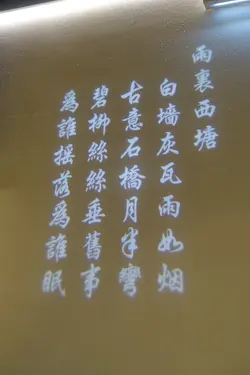 雨裏西塘
白墻灰瓦雨如烟
古意石橋月半彎
碧柳絲絲垂舊事
為誰摇落為誰眠